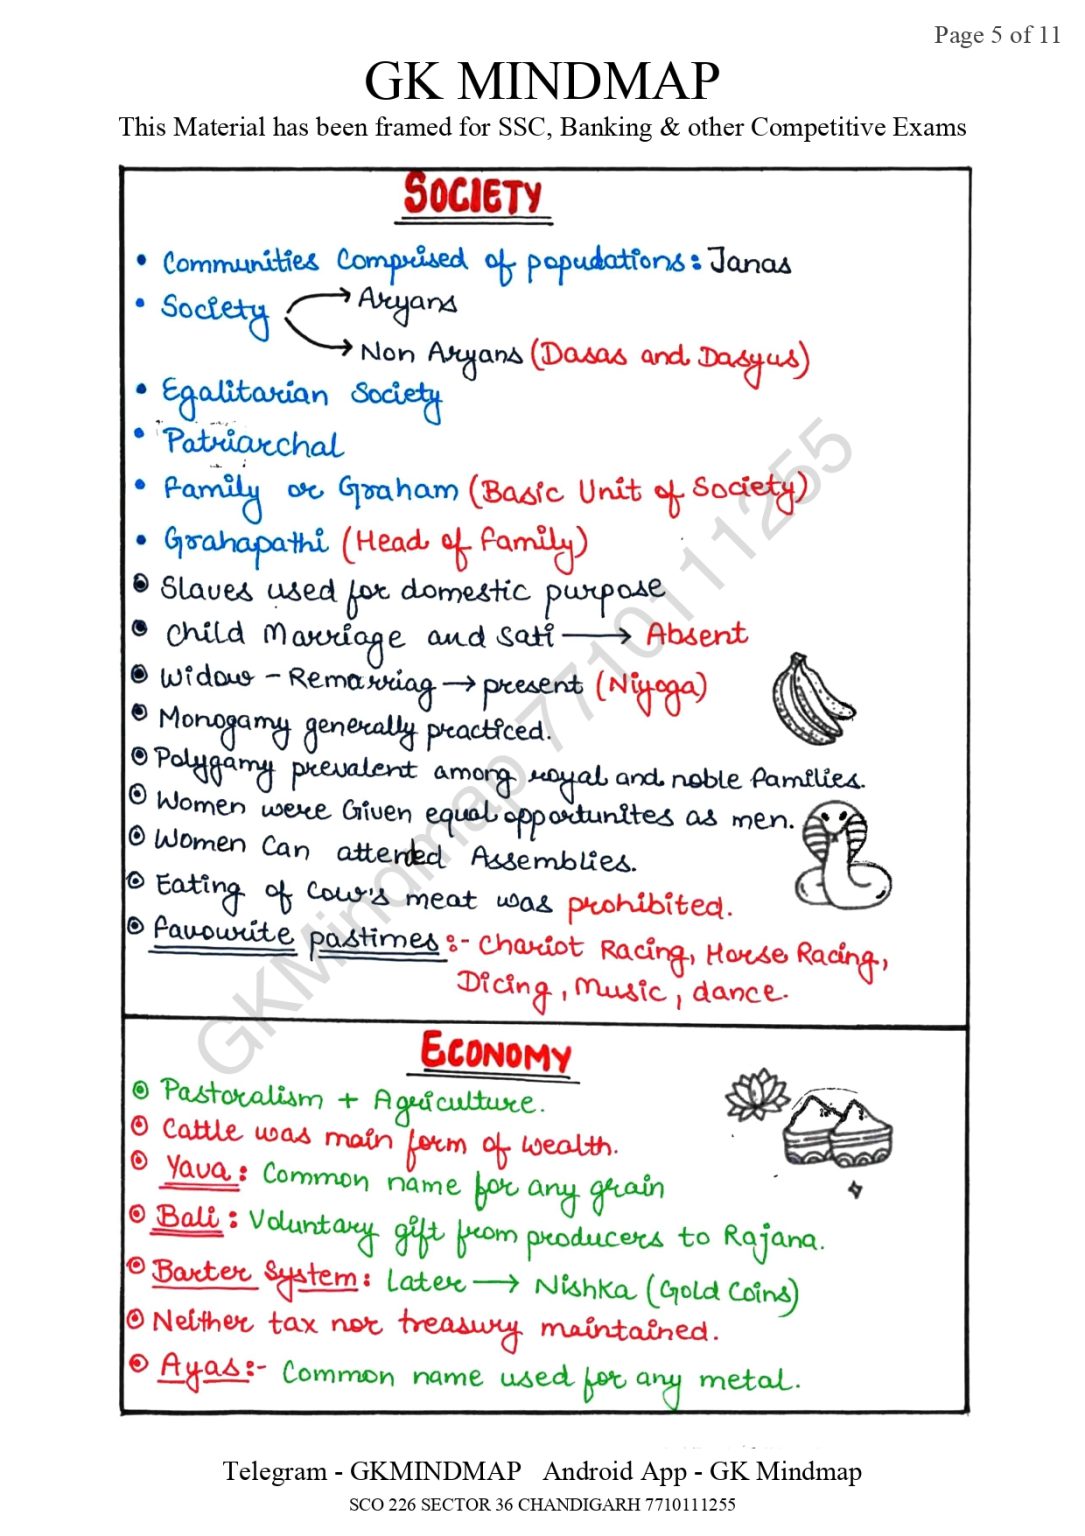 Page 5 of 11
GK MINDMAP
This Material has been framed for SSC, Banking & other Competitive Exams
SOCIETY
• Communities Comprised of popudations: Janas
• Society → Aryans
→ Non Aryans (Dasas and Dasyus)
• Egalitarian Society
• Patriarchal
• Family or Graham (Basic Unit of Society)
• Grahapathi (Head of family)
Slaves used for domestic purpose
Child Marriage and Sati → Absent
Widow - Remarriag → present (Niyoga)
Monogamy generally practiced.
Polygamy prevalent among royal and noble families.
Women were Given equal opportunites as men.
Women Can attended Assemblies.
Eating of Cow's meat was prohibited.
Favourite pastimes :- Chariot Racing, Horse Racing,
Dicing, Music, dance.
GKMindmap 7710111255
ECONOMY
Pastoralism + Agriculture.
Cattle was main form of wealth.
Yava: Common name for any grain
Bali: Voluntary gift from producers to Rajana.
Barter System: Later → Nishka (Gold Coins)
Neither tax nor treasury maintained.
Ayas:- Common name used for any metal.
Telegram - GKMINDMAP Android App - GK Mindmap
SCO 226 SECTOR 36 CHANDIGARH 7710111255